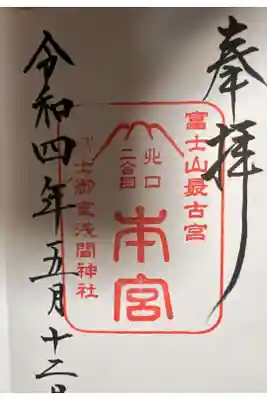 奉拝
富士山最古宮
北口
二合目
本宮
冨士御室浅間神社
令和四年五月十二日